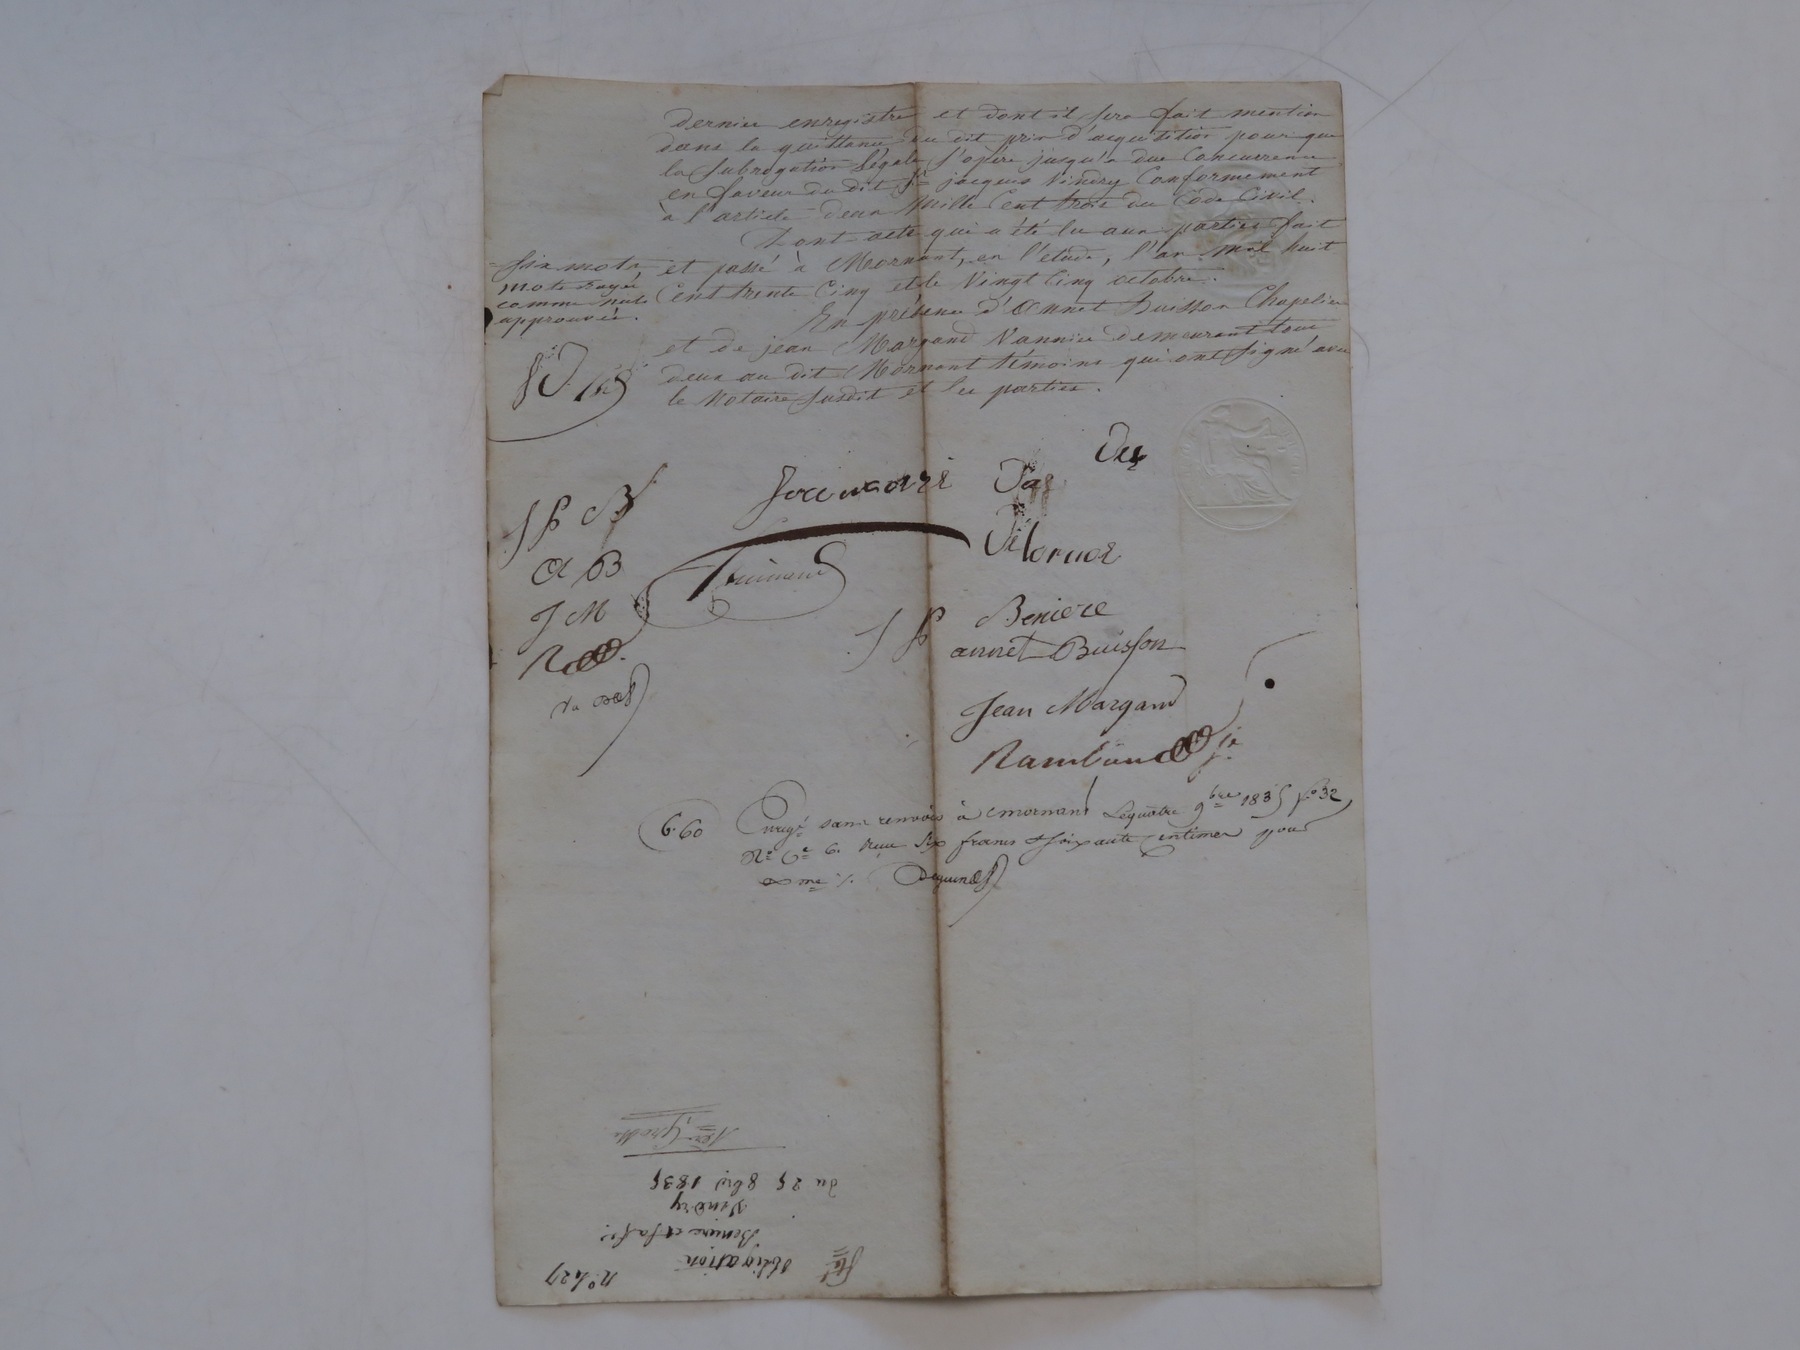 dernier enregistré et dont il sera fait mention
dans la quittance du dit prix d'acquisition pour que
la subrogation légale s'opère jusqu'a due Concurrence
en faveur du dit Sr jacques Vindry Conformement
à l'article deux Mille Cent trois du Code Civil.
Dont acte qui a été lu aux parties fait
et passé à Mornant, en l'étude, l'an mil huit
Cent trente Cinq et le Vingt Cinq octobre.
En présence d'Annet Buisson Chapelier
et de jean Margand Vannier demeurant tous
deux au dit Mornant témoins qui ont signé avec
le Notaire susdit et les parties.
mots rayés
comme nuls
approuvés.
J P B
A B
J M
J P Beniere
annet Buisson
Jean Margand
6.60
Enregé sans renvois à Mornant Le quatre 9bre 1835 fo 32
Ro Ce 6. Reçu Six francs soixante centimes pour
No 427
obligation
Beniere
Vindry
du 25 8bre 1835